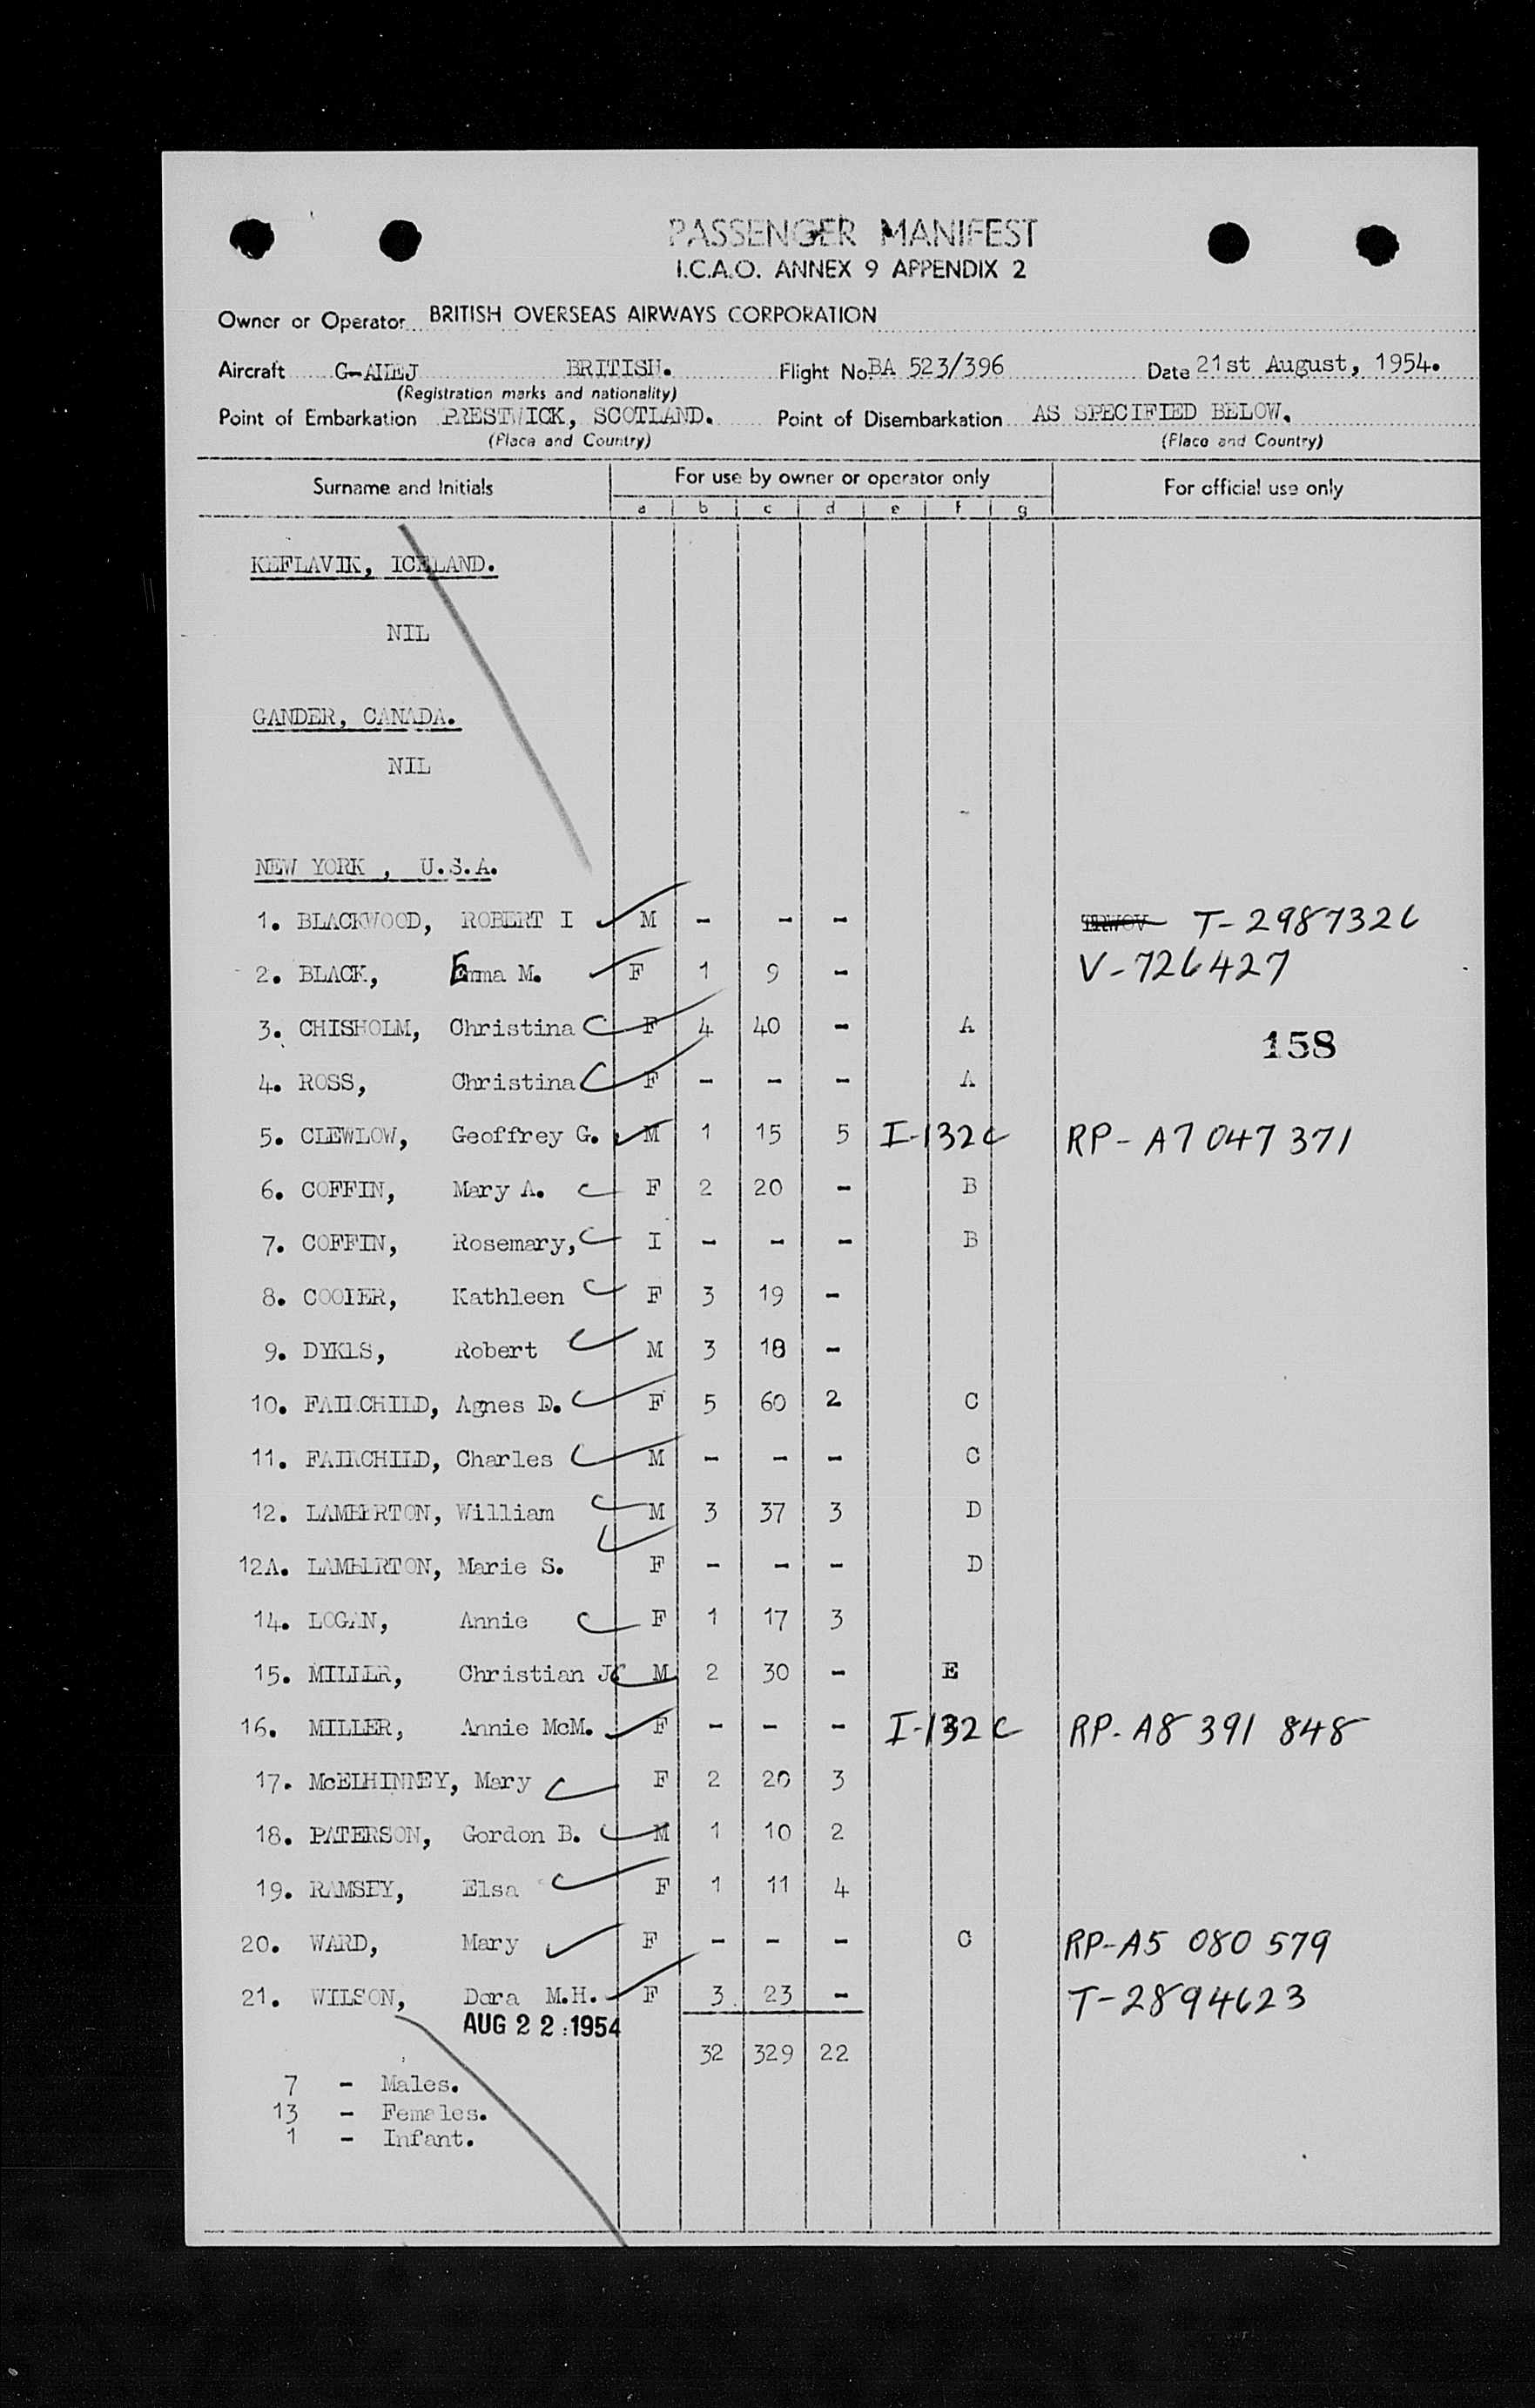 PASSENGER MANIFEST
I.C.A.O. ANNEX 9 APPENDIX 2
Owner or Operator BRITISH OVERSEAS AIRWAYS CORPORATION
Aircraft BRITISH. Flight No. BA 523/396 Date 21st August, 1954.
(Registration marks and nationality)
Point of Embarkation PRESTWICK, SCOTLAND. Point of Disembarkation AS SPECIFIED BELOW.
(Place and Country) (Place and Country)
Surname and Initials For use by owner or operator only For official use only
a b c d e f g
KEFLAVIK, ICELAND.
NIL
GANDER, CANADA.
NIL
NEW YORK , U.S.A.
1. BLACKWOOD, ROBERT I M - - - TRWOV T-2987326
2. BLACK, Emma M. F 1 9 - V-726427
3. CHISHOLM, Christina F 4 40 - A
158
4. ROSS, Christina F - - - A
5. CLEWLOW, Geoffrey G. M 1 15 5 I-132C RP-A7 047 371
6. COFFIN, Mary A. F 2 20 - B
7. COFFIN, Rosemary, I - - - B
8. Kathleen F 3 19 -
9. DYKES, Robert M 3 18 -
10. FAIRCHILD, Agnes D. F 5 60 2 C
11. FAIRCHILD, Charles M - - - C
12. LAMBERTON, William M 3 37 3 D
12A. LAMBERTON, Marie S. F - - - D
14. LOGAN, Annie F 1 17 3
15. MILLER, Christian J M 2 30 - E
16. MILLER, Annie McM. F - - - I-132C RP-A8 391 848
17. McELHINNEY, Mary F 2 20 3
18. PATERSON, Gordon B. M 1 10 2
19. RAMSEY, Elsa F 1 11 4
20. WARD, Mary F - - - C RP-A5 080 579
21. WILSON, Dora M.H. F 3 23 - T-2894623
AUG 22 1954
32 329 22
7 - Males.
13 - Females.
1 - Infant.